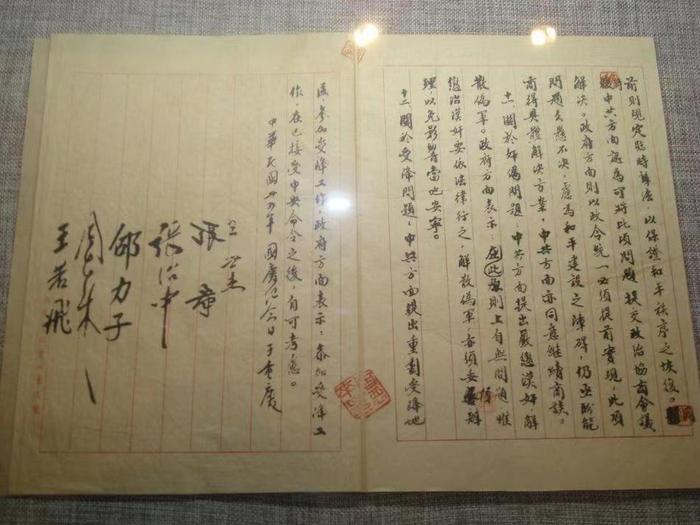 前則規定臨時辦法,以保證和平秩序之恢復。
中共方面認為可將此項問題提交政治協商會議
解決。政府方面則以政令統一必須提前實現,此項
問題久懸不決,慮為和平建設之障碍,仍亟盼能
商得具體解決方案,中共方面亦同意繼續商談。
十一、關於奸偽問題,中共方面提出嚴懲漢奸解
散偽軍。政府方面表示,此在原則上自無問題,惟
懲治漢奸要依法律行之,解散偽軍,亦須妥慎辦
理,以免影響當地安寧。
十二、關於受降問題,中共方面提出重劃受降地
區,參加受降工作,政府方面表示:參加受降工
作,在已接受中央命令之後,自可考慮。
中華民國卅四年國慶紀念日于重慶
王世杰
張群
張治中
邵力子
周恩來
王若飛